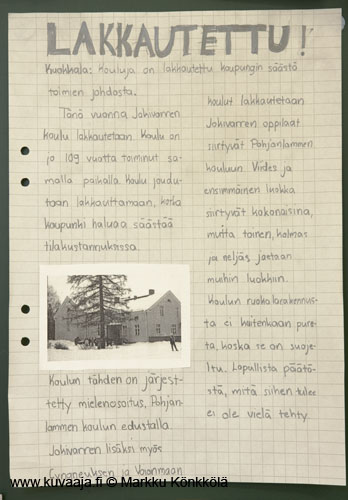 LAKKAUTETTU!
Kuokkala: Kouluja on lakkautettu kaupungin säästö
toimien johdosta.
Tänä vuonna Jokivarren
koulu lakkautetaan. Koulu on
jo 109 vuotta toiminut sa-
malla paikalla. Koulu joudu-
taan lakkauttamaan, koska
kaupunki haluaa säästää
tilakustannuksissa.
Koulun tähden on järjest-
tetty mielenosoitus, Pohjan-
lammen koulun edustalla.
Jokivarren lisäksi myös
Cygnaeuksen ja Vaajaman
koulut lakkautetaan
Jokivarren oppilaat
siirtyvät Pohjanlammen
kouluun. Viides ja
ensimmäinen luokka
siirtyvät kokonaisina,
mutta toinen, kolmas
ja neljäs jaetaan
muihin luokkiin.
Koulun ruokalarakennus-
ta ei kuitenkaan pure-
ta, koska se on suoje-
ltu. Lopullista päätö-
stä, mitä siihen tulee
ei ole vielä tehty.
www.kuvaaja.fi © Markku Könkkölä